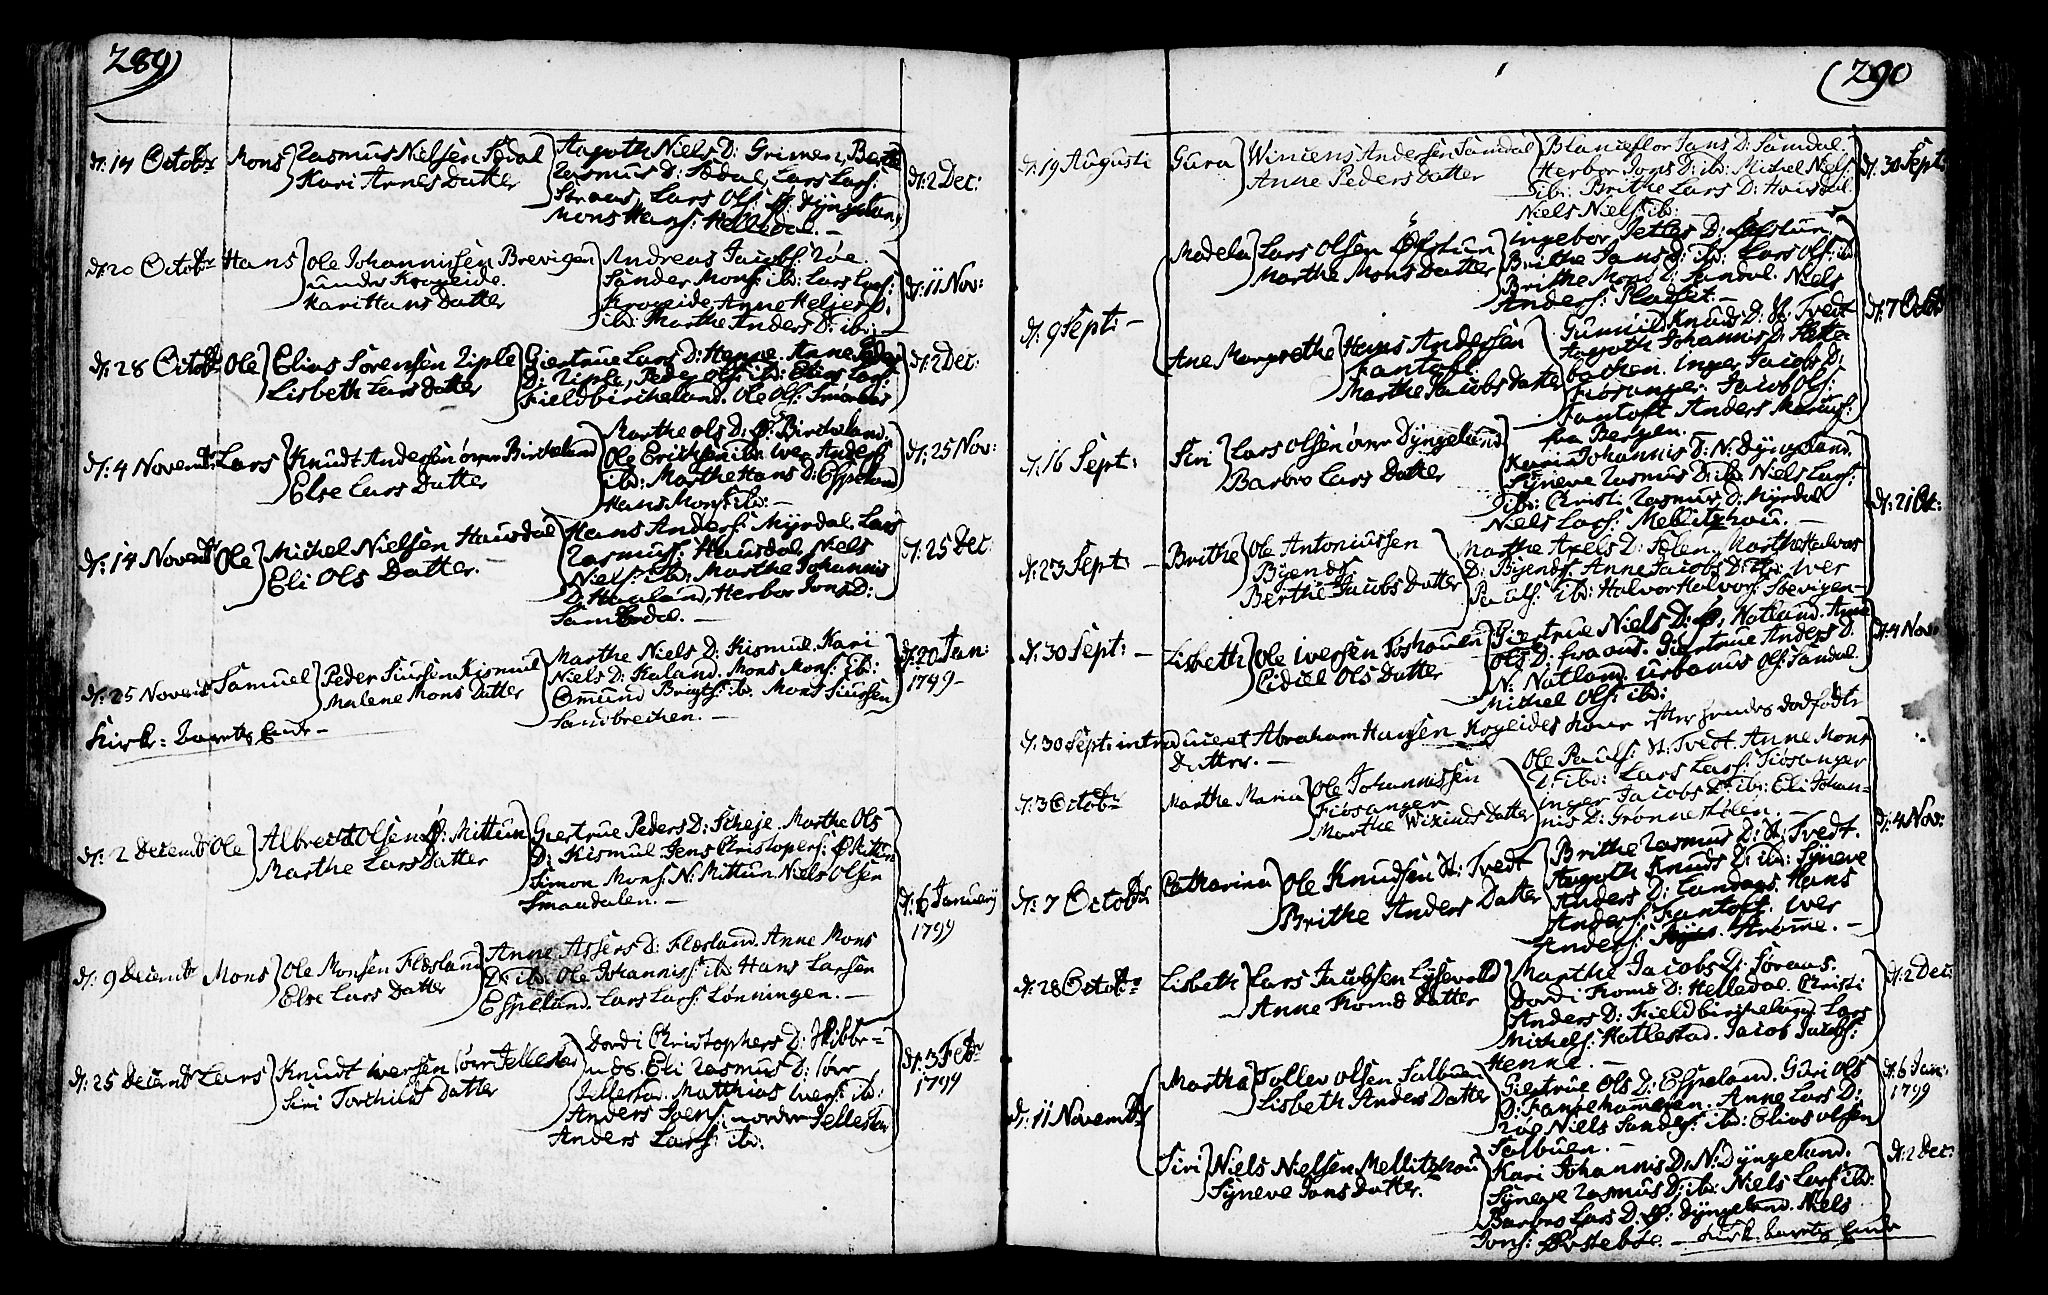 289)
d: 14 Octobr Mons Rasmus Nielsen Sædal
Kari Arnes Datter
Aagoth Niels D: Grimen, Berte
Rasmus D: Sædal, Lars Lars:
Straus, Lars Ols: Ø: Dyngeland,
Mons Hans: Helledal. -
d: 2 Dec:
d: 20 Octobr Hans Ole Johannissen Brevigen
under Krogeide.
Kari Hans Datter
Andreas Jacobs: Røe.
Sander Mons: ibd: Lars Lars:
Krogeide, Anne Heljers D:
ibd: Marthe Anders D: ibd: -
d: 11 Nov:
d: 28 Octobr Ole Elias Sørensen Riple
Lisbeth Lars Datter
Giertrue Lars D: Henne. Anne Peder
D: Riple, Peder Ols: ibd: Elias Lars:
Fieldbircheland. Ole Ols: Smøraas
d: 2 Dec:
d: 4 Novembr Lars Knudt Andersen øvre Bircheland
Else Lars Datter
Marthe Ols D: Ø: Bircheland,
Ole Erichsen ibd: Iver Anders:
ibd: Marthe Hans D: Espeland
Hans Mons: ibd: -
d: 25 Nov:
d: 14 Novembr Ole Michel Nielsen Hausdal
Eli Ols Datter. -
Hans Anders: Myrdal. Lars
Rasmus: Hausdal, Niels
Niels: ibd: Marthe Johannis
D: Hauland, Herbor Jons D:
Samdal. -
d: 25 Dec:
d: 25 Novembr Samuel Peder Siursen Kismul
Malene Mons Datter
Marthe Niels D: Kismul, Kari
Niels D: Haland. Mons Mons: ibd:
Omund Brygts: ib. Mons Siursen
Sandbrechen. -
d: 20 Jan:
1799 -
Kirke-Aarets Ende -
d: 2 Decembr Ole Albrecht Olsen Ø: Mittun
Marthe Lars Datter
Giertrue Peders D: Scheje, Marthe Ols
D: Kismul, Jens Christophers:
Simon Mons: N: Mittun, Niels Olsen
Smaadalen. -
d: 6 January
1799
d: 9 Decembr Mons Ole Monsen Flesland
Else Lars Datter
Anne Assers D: Flesland. Anne Mons
D: ibd: Ole Johannis: ibd: Hans Larsen
Espeland. Lars Lars: Lønningen. -
d: 25 Decembr Lars Knudt Iversen sørr Jellestad
Siri Torchild Datter
Dordi Christophers D: Skibbe-
næs. Eli Rasmus D: sørr
Jellestad. Matthias Ivers: ib:
Anders Svens: nordre Jellestad
Anders Lars: ibd.
d: 3 Febr
1799
(290
d: 19 Augusti Gura Wincens Andersen Samdal
Anne Peders Datter
Blanceflor Jans D: Samdal.
Herbor Jons D: ib: Michel Niels:
ib: Brithe Lars D: Hausdal.
Niels Niels: ibd:
d: 30 Sept:
d: 9 Sept: -
Madela Lars Olsen Øfstun
Marthe Mons Datter
Ingebor Jetles D: Øfstun,
Brithe Jans D: ibd: Lars Ols: ib
Brithe Mons D: Sandal. Niels
Anders: Pladset. -
d: 7 Octbr
Ane Margrethe Hans Andersen
Fantoft.
Marthe Jacobs Datter
Gunild Knuds D: St: Tvedt
Aagoth Johannis D: Slette-
bachen, Inger Jacobs D:
Fiøsanger. Jacob Ols:
Fantoft Anders Marcus:
fra Bergen. -
d: 16 Sept: Siri Lars Olsen øvre Dyngeland
Barbro Lars Datter
Kari Johannis D: N: Dyngeland.
Syneve Rasmus D: ib. Niels Lars:
ibd: Christi Rasmus D: Myrdal
Niels Lars: Mellitzhou. -
d: 21 Oct:
d: 23 Sept: - Brithe Ole Antoniussen
Byends.
Berthe Jacobs Datter
Marthe Axels D: Selen, Marthe Halvas
D: Byends. Anne Jacobs D: ibd: Iver
Pauls: ibd: Halvor Halvors: Sbevigen -
d: 30 Sept: - Lisbeth Ole Iversen Toshouen
Cidcel Ols Datter
Giertrue Niels D: Ø: Natland. Anne
Ols D: Eraaus. Giertrue Anders D:
N: Natland. Urbanus Ols: Sandal.
Michel Ols: ibd:
d: 4 Nov:
d: 30 Sept: introduceret Abraham Hansen Krogeides Kone efter hendes dødfødte
Datter. -
d: 3 Octobr Marthe Maria Ole Johannissen
Fiøsanger
Marthe Wixinds Datter
Ole Pauls: St: Tvedt. Anne Mons
D: ibd: Lars Lars: Fiøsanger
Inger Jacobs D: ib: Eli Johan-
nis D: Grønnestølen. -
d: 4 Nov:
d: 7 Octobr Catharina Ole Knudsen St: Tvedt
Brithe Anders Datter
Brithe Rasmus D: St: Tvedt.
Aagoth Knuds D: ibd: Syneve
Anders D: Landaas. Hans
Anders: Fantoft. Iver
Anders: Strømme. -
d: 28 Octobr Lisbeth Lars Jacobsen Lysevold
Anne Tromd Datter
Marthe Jacobs D: Søraas.
Dordi Tromd D: Helledal. Christi
Anders D: Fieldbircheland. Lars
Michels: Hatlestad. Jacob Jacobs:
Henne. -
d: 2 Dec:
d: 11 Novembr
Martha Tollev Olsen Salbuen
Lisbeth Anders Datter
Giertrue Ols D: Espeland. Guri Ols
D: Fansehammeren. Anne Lars D:
Røe Niels Sandes: ibd: Elias Olsen
Salbuen. -
d: 6 Jan:
1799
Siri Niels Nielsen Mellitzhou
Syneve Jans Datter.
Kari Johannis D: N: Dyngeland.
Syneve Rasmus D: ib: Niels Lars: ibd:
Barbro Lars D: Ø: Dyngeland. Niels
Jons: Øvstebøe. - Kirke-Aarets Ende
d: 2 Dec: